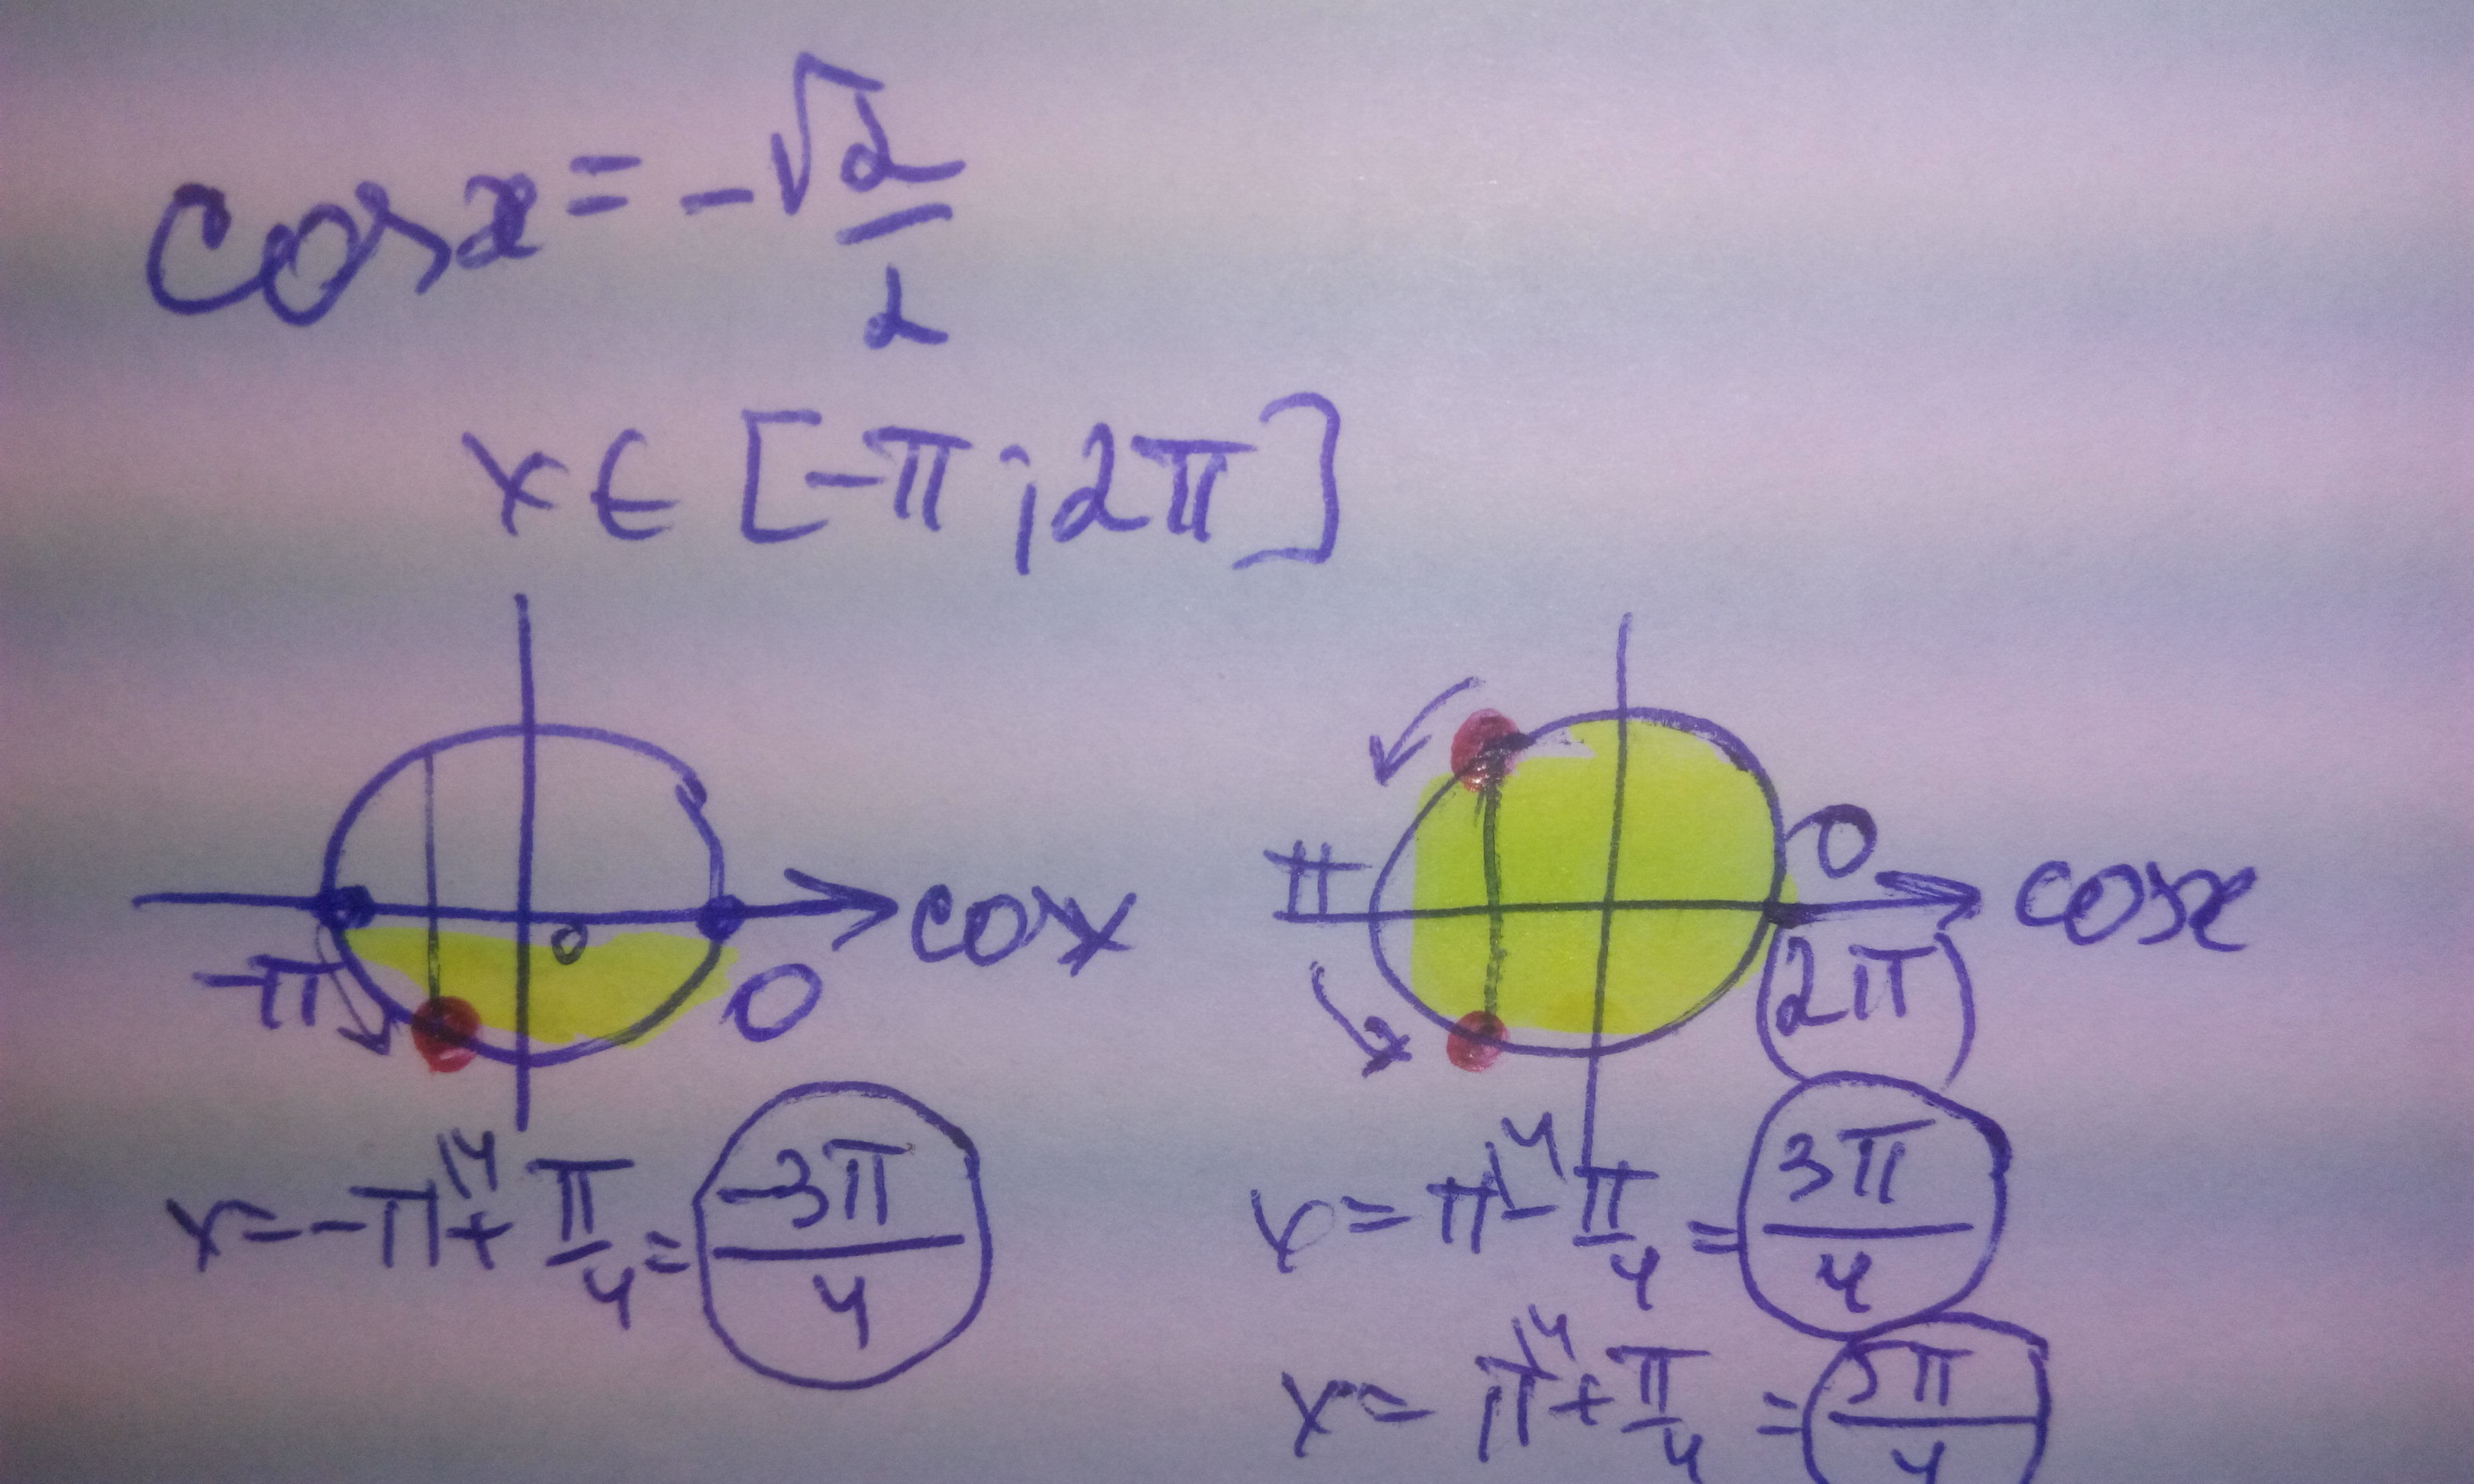 cos x = -√2/2
x ∈ [-π ; 2π]
-π 0 0 cos x
π 0 (2π) cos x
x = -π^{/4} + π/4 = -3π/4
x = π^{/4} - π/4 = 3π/4
x = π^{/4} + π/4 = 5π/4